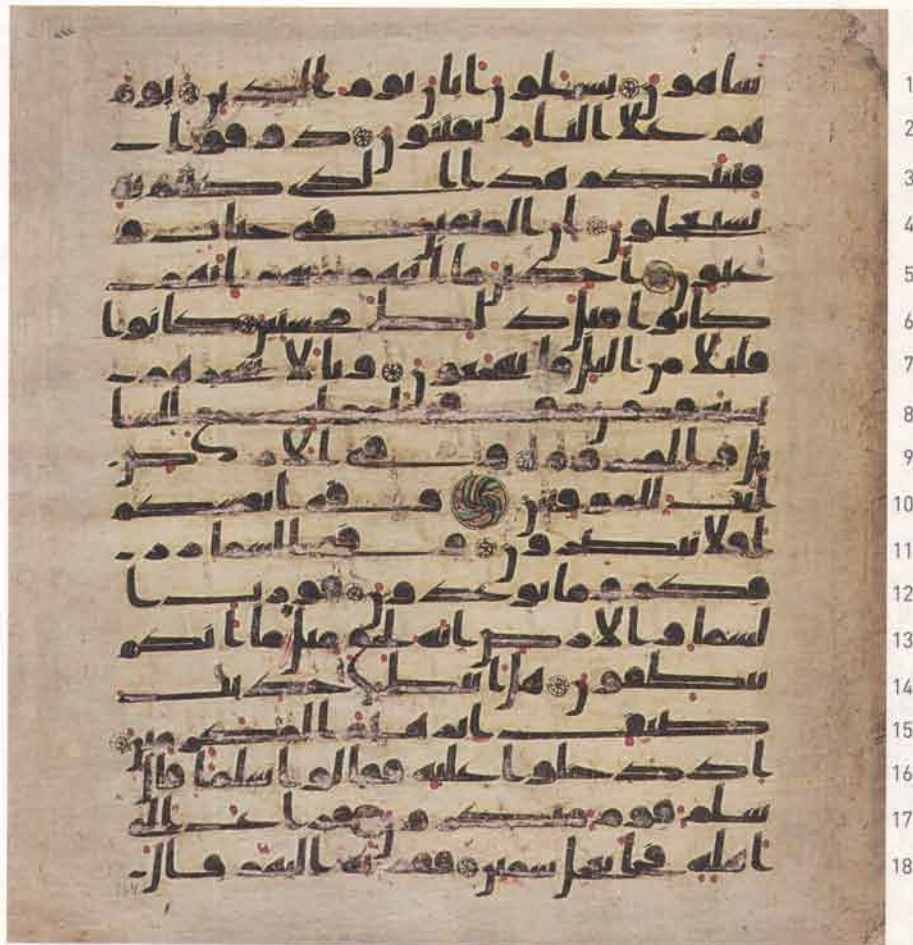 ساهون يسلون ايان يوم الدين يوم 1
هم على النار يفتنون ذوقوا 2
فتنتكم هذا الذي كنتم به 3
تستعجلون ان المتقين في جنات و 4
عيون اخذين ما اتيهم ربهم انهم 5
كانوا قبل ذلك محسنين كانوا 6
قليلا من اليل ما يهجعون وبالاسحار هم 7
يستغفرون وفي امولهم حق للسا 8
ئل والمحروم وفي الارض 9
ايت للموقنين وفي انفسكم 10
افلا تبصرون وفي السماء رز 11
قكم وما توعدون فورب ا 12
لسماء والارض انه لحق مثل ما انكم 13
تنطقون هل اتيك حديث 14
ضيف ابرهيم المكرمين 15
اذ دخلوا عليه فقالوا سلما قال 16
سلم قوم منكرون فراغ الى 17
اهله فجاء بعجل سمين فقربه اليهم قال 18